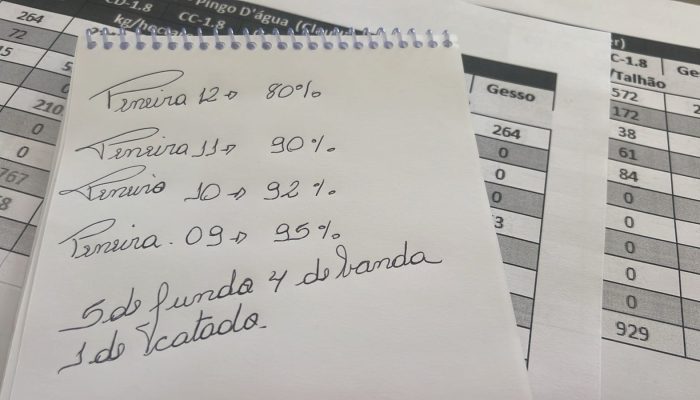 CD-1.8
kg/hectare
Pingo D'água
CC-1.8
264
72
210
0
0
767
Peneira 12 → 80%
Peneira 11 → 90%
Peneira 10 → 92%
Peneira . 09 → 95%
5 de fundo 4 de banda
1 de catado.
Gesso
264
0
0
0
C-1.8
/Talhão
572
172
38
61
84
0
0
0
0
929
Ge